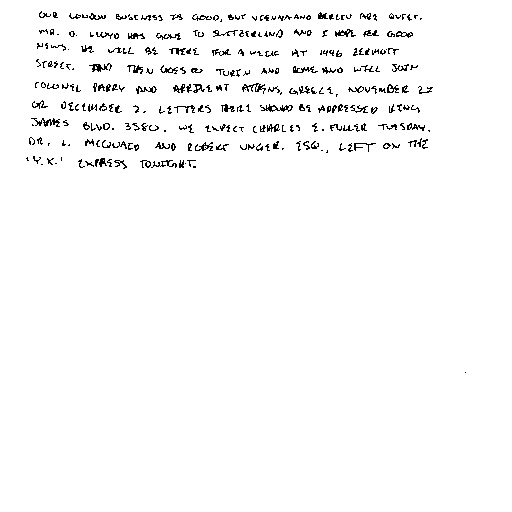 OUR LONDON BUSINESS IS GOOD, BUT VIENNA AND BERLIN ARE QUIET.
MR. D. LLOYD HAS GONE TO SWITZERLAND AND I HOPE FOR GOOD
NEWS. HE WILL BE THERE FOR A WEEK AT 1496 ZERMOTT
STREET. AND THEN GOES TO TURIN AND ROME AND WILL JOIN
COLONEL PARRY AND ARRIVE AT ATHENS, GREECE, NOVEMBER 27
OR DECEMBER 2. LETTERS THERE SHOULD BE ADDRESSED KING
JAMES BLVD. 3580. WE EXPECT CHARLES E. FULLER TUESDAY.
DR. L. MCQUAID AND ROBERT UNGER. ESQ., LEFT ON THE
'Y.X.' EXPRESS TONIGHT.